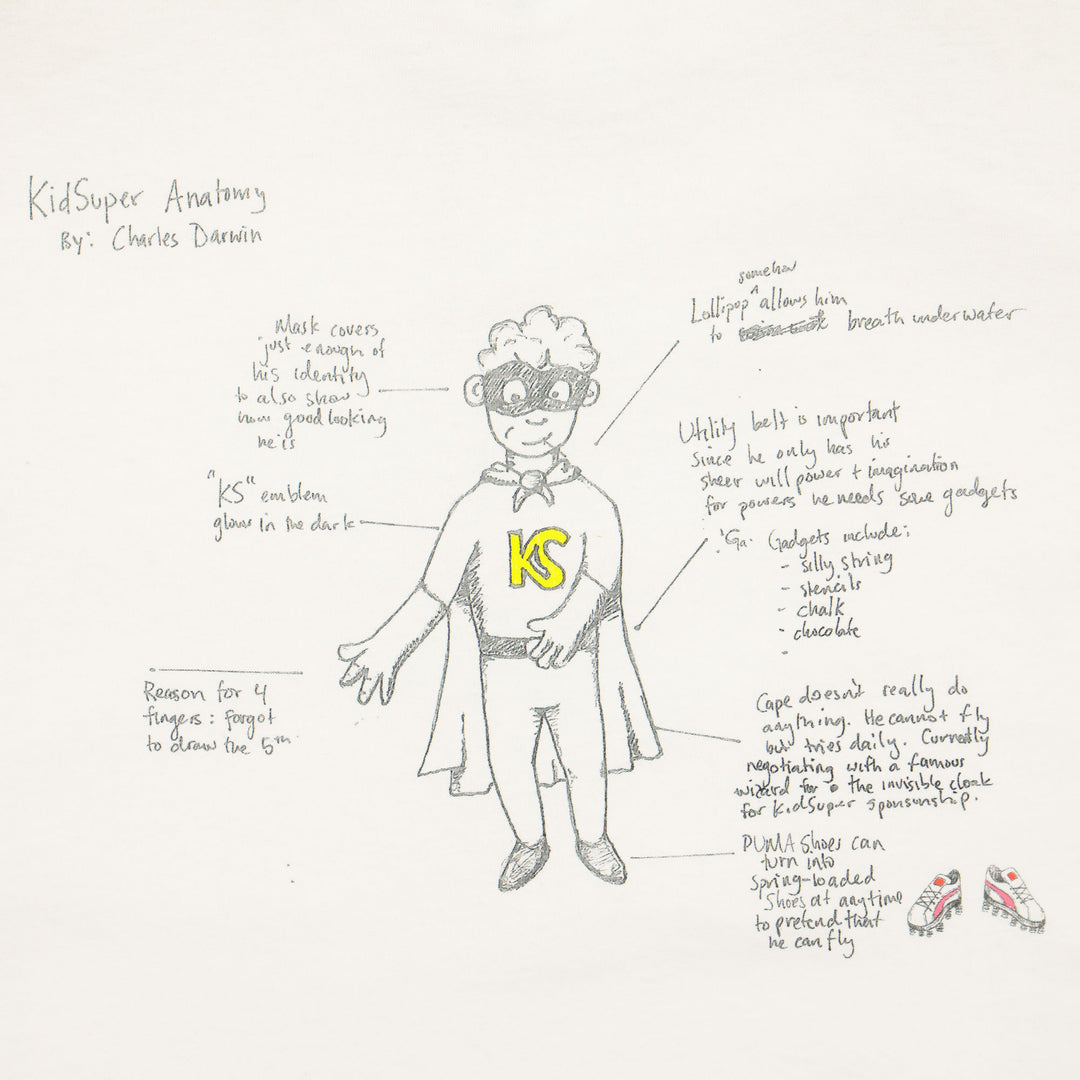 KidSuper Anatomy
By: Charles Darwin
Mask covers
just enough of
his identity
to also show
how good looking
he is
"KS" emblem
glows in the dark
Reason for 4
fingers: Forgot
to draw the 5th
somehow
Lollipop ^ allows him
to breath underwater
Utility belt is important
since he only has his
sheer will power + imagination
for powers he needs some gadgets
Ga. Gadgets include:
- silly string
- stencils
- chalk
- chocolate
-
KS
Cape doesn't really do
anything. He cannot fly
but tries daily. Currently
negotiating with a famous
wizard for the invisible cloak
for KidSuper sponsorship.
PUMA Shoes can
turn into
spring-loaded
Shoes at anytime
to pretend that
he can fly